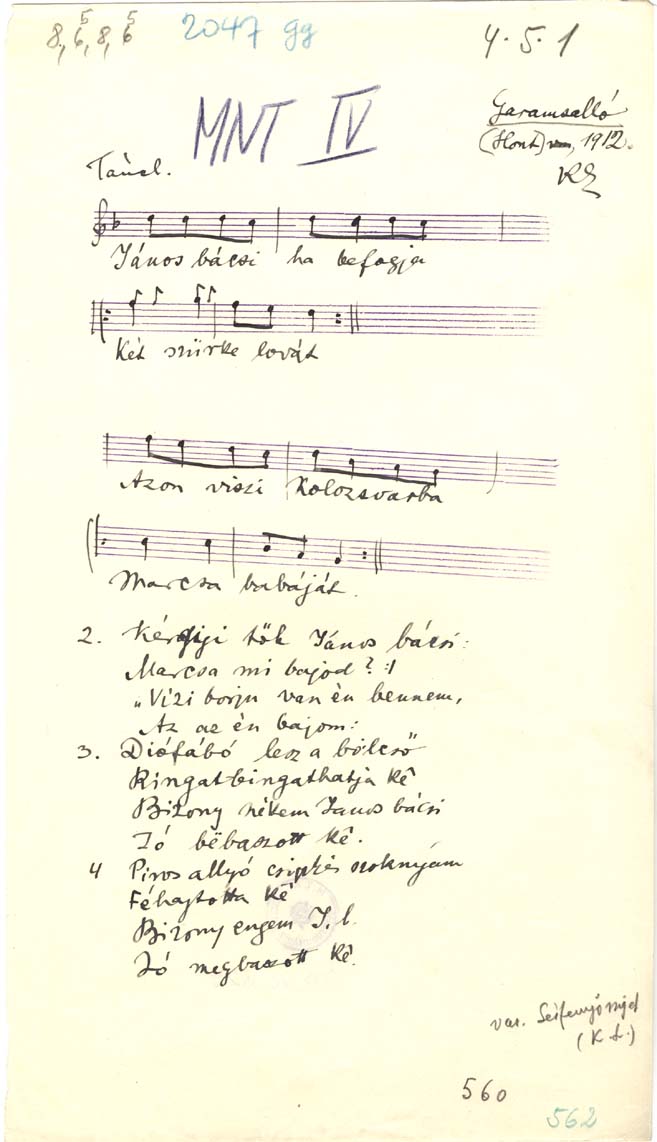 8, 6, 8, 6
5 5
2047 gg
4.5.1
MNT IV
Garamsalló
(Hont) 1912.
Táncl.
János bácsi ha befogja
Két szürke lovát
Azon viszi Kolozsvarba
Marcsa babáját.
2. tők János bácsi:
Marcsa mi bajod? :|
"Vizi borju van én bennem,
Az az én bajom:
3. Diófábó lesz a bölcső"
Ringatbingathatja kê
Bizony nékem Janos bácsi
Jó bëbaszott kê.
4 Piros allyó csipkés szoknyám
Féhajtotta kê
Bizony engem J. b.
Jó megbaszott kê.
var.
560
562